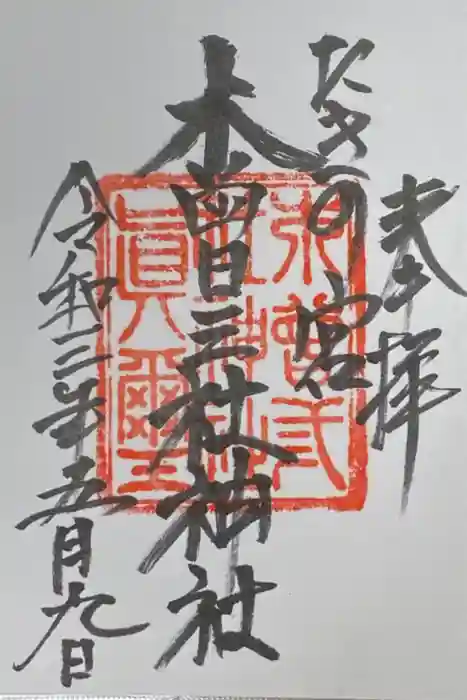 奉拝
たきの宮
木曽三社神社
令和三年五月九日